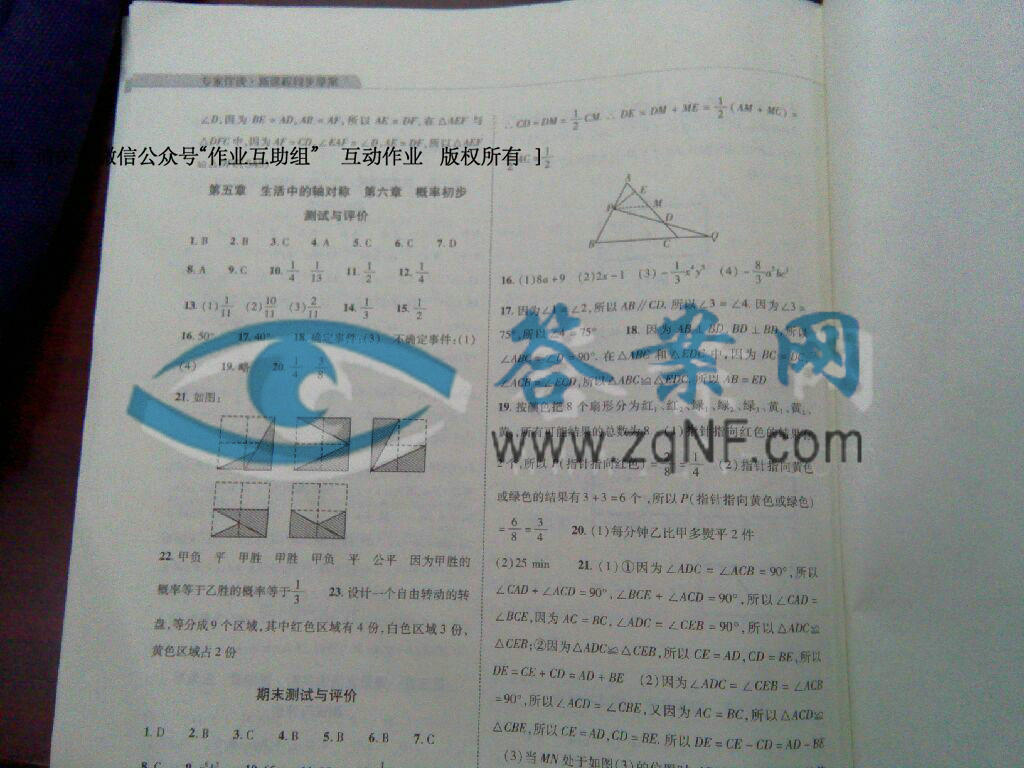 专家伴读·新课程同步导案
∠D,因为 BE = AD, AB = AF,所以 AE = DF,在 △AEF 与
△DFC 中,因为 AF = CD, ∠EAF = ∠D, AE = DF,所以 △AEF
微信公众号“作业互助组” 互动作业 版权所有 ]
第五章 生活中的轴对称 第六章 概率初步
测试与评价
1. B 2. B 3. C 4. A 5. C 6. C 7. D
8. A 9. C 10. 1/4 1/13 11. 1/2 12. 1/4
13. (1) 1/11 (2) 10/11 (3) 2/11 14. 1/3 15. 1/2
16. 50° 17. 40° 18. 确定事件:(3) 不确定事件:(1)
(4) 19. 略 20. 1/4 3/8
21. 如图:
22. 甲负 平 甲胜 甲胜 甲负 平 公平 因为甲胜的
概率等于乙胜的概率等于 1/3 23. 设计一个自由转动的转
盘,等分成 9 个区域,其中红色区域有 4 份,白色区域 3 份、
黄色区域占 2 份
期末测试与评价
1. D 2. B 3. C 4. B 5. B 6. B 7. C
∴ CD = DM = 1/2 CM ∴ DE = DM + ME = 1/2 (AM + MC) =
1/2 AC = 1/2
A
E
P M
D
B C Q
16. (1)8a + 9 (2)2x − 1 (3) − 1/3 x⁴y⁵
17. 因为∠1 = ∠2,所以 AB // CD. 所以∠3 = ∠4. 因为∠3 =
75°,所以∠4 = 75° 18. 因为 AB ⊥ BD,
∠ABC = ∠D = 90°. 在△ABC 和△EDC 中,因为 BC = DC
∠ACB = ∠ECD,所以△ABC≌△EDC. 所以 AB = ED
19. 按颜色把 8 个扇形分为红₁、红₂、绿₁、绿₂、绿₃、黄₁、黄₂、
黄₃,所有可能结果的总数为 8 (1)指针指向红色的结果有
2 个,所以 P(指针指向红色) = 2/8 = 1/4 (2)指针指向黄色
或绿色的结果有 3 + 3 = 6 个,所以 P(指针指向黄色或绿色)
= 6/8 = 3/4 20. (1)每分钟乙比甲多熨平 2 件
(2)25 min 21. (1)①因为∠ADC = ∠ACB = 90°,所以
∠CAD + ∠ACD = 90°, ∠BCE + ∠ACD = 90°,所以∠CAD =
∠BCE,因为 AC = BC, ∠ADC = ∠CEB = 90°,所以△ADC≌
△CEB;②因为△ADC≌△CEB,所以 CE = AD, CD = BE,所以
DE = CE + CD = AD + BE (2)因为∠ADC = ∠CEB = ∠ACB
= 90°,所以∠ACD = ∠CBE,又因为 AC = BC,所以△ACD≌
△CBE,所以 CE = AD, CD = BE. 所以 DE = CE − CD = AD − BE
(3)当 MN 处于如图(3)的位置时
答案网
www.zqNF.com